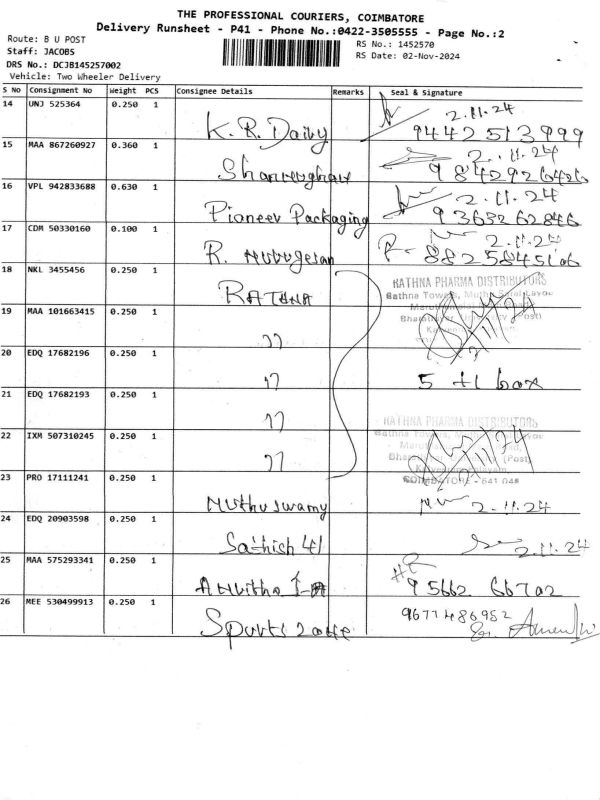 THE PROFESSIONAL COURIERS, COIMBATORE
Delivery Runsheet - P41 - Phone No.:0422-3505555 - Page No.:2
Route: B U POST
RS No.: 1452570
Staff: JACOBS
RS Date: 02-Nov-2024
DRS No.: DCJB145257002
Vehicle: Two Wheeler Delivery
S No Consignment No Weight PCS Consignee Details Remarks Seal & Signature
14 UNJ 525364 0.250 1 K.R. Daily 2.11.24
9442513999
15 MAA 867260927 0.360 1 2.11.24
9842926426
16 VPL 942833688 0.630 1 Pioneer Packaging 2.11.24
9363262846
17 CDM 50330160 0.100 1 R. Murugesan 2.11.24
8825845106
18 NKL 3455456 0.250 1 RATHNA RATHNA PHARMA DISTRIBUTORS
19 MAA 101663415 0.250 1 ,,
20 EDQ 17682196 0.250 1 ,, 5 +1 box
21 EDQ 17682193 0.250 1 ,, RATHNA PHARMA DISTRIBUTORS
22 IXM 507310245 0.250 1 ,,
COIMBATORE - 641 046
23 PRO 17111241 0.250 1 Muthuswamy 2.11.24
24 EDQ 20903598 0.250 1 Sathish 41 2.11.24
25 MAA 575293341 0.250 1 95662 66702
26 MEE 530499913 0.250 1 Sports zone 9677486952